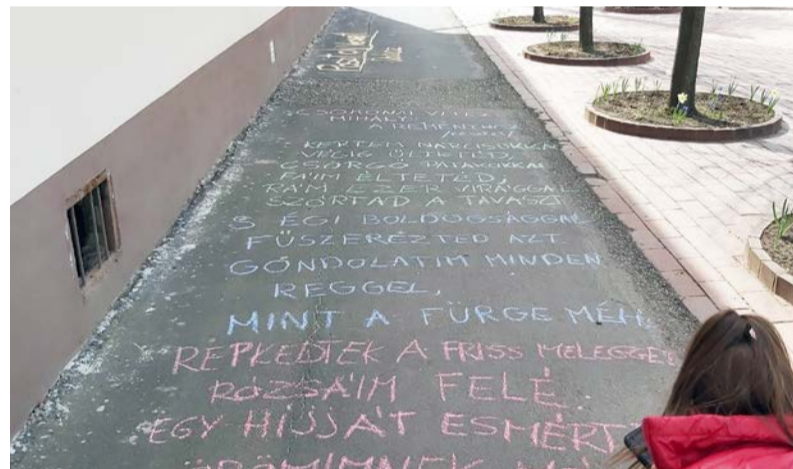 CSOKONAI VITÉZ
MIHÁLY:
A REMÉNYHEZ
KERTEM NÁRCISOKKAL
VÉGIG ÜLTETÉD,
CSÖRGŐ PATAKOKKAL
FÁIM ÉLTETÉD,
RÁM EZER VIRÁGGAL
SZÓRTAD A TAVASZT
S ÉGI BOLDOGSÁGGAL
FŰSZERÉZTED AZT.
GONDOLATIM MINDEN
REGGEL,
MINT A FÜRGE MÉH,
REPKEDTEK A FRISS MELEGGEL
RÓZSÁIM FELÉ.
EGY HÍJJÁT ESMÉRT
ÖRÖMIMNEK